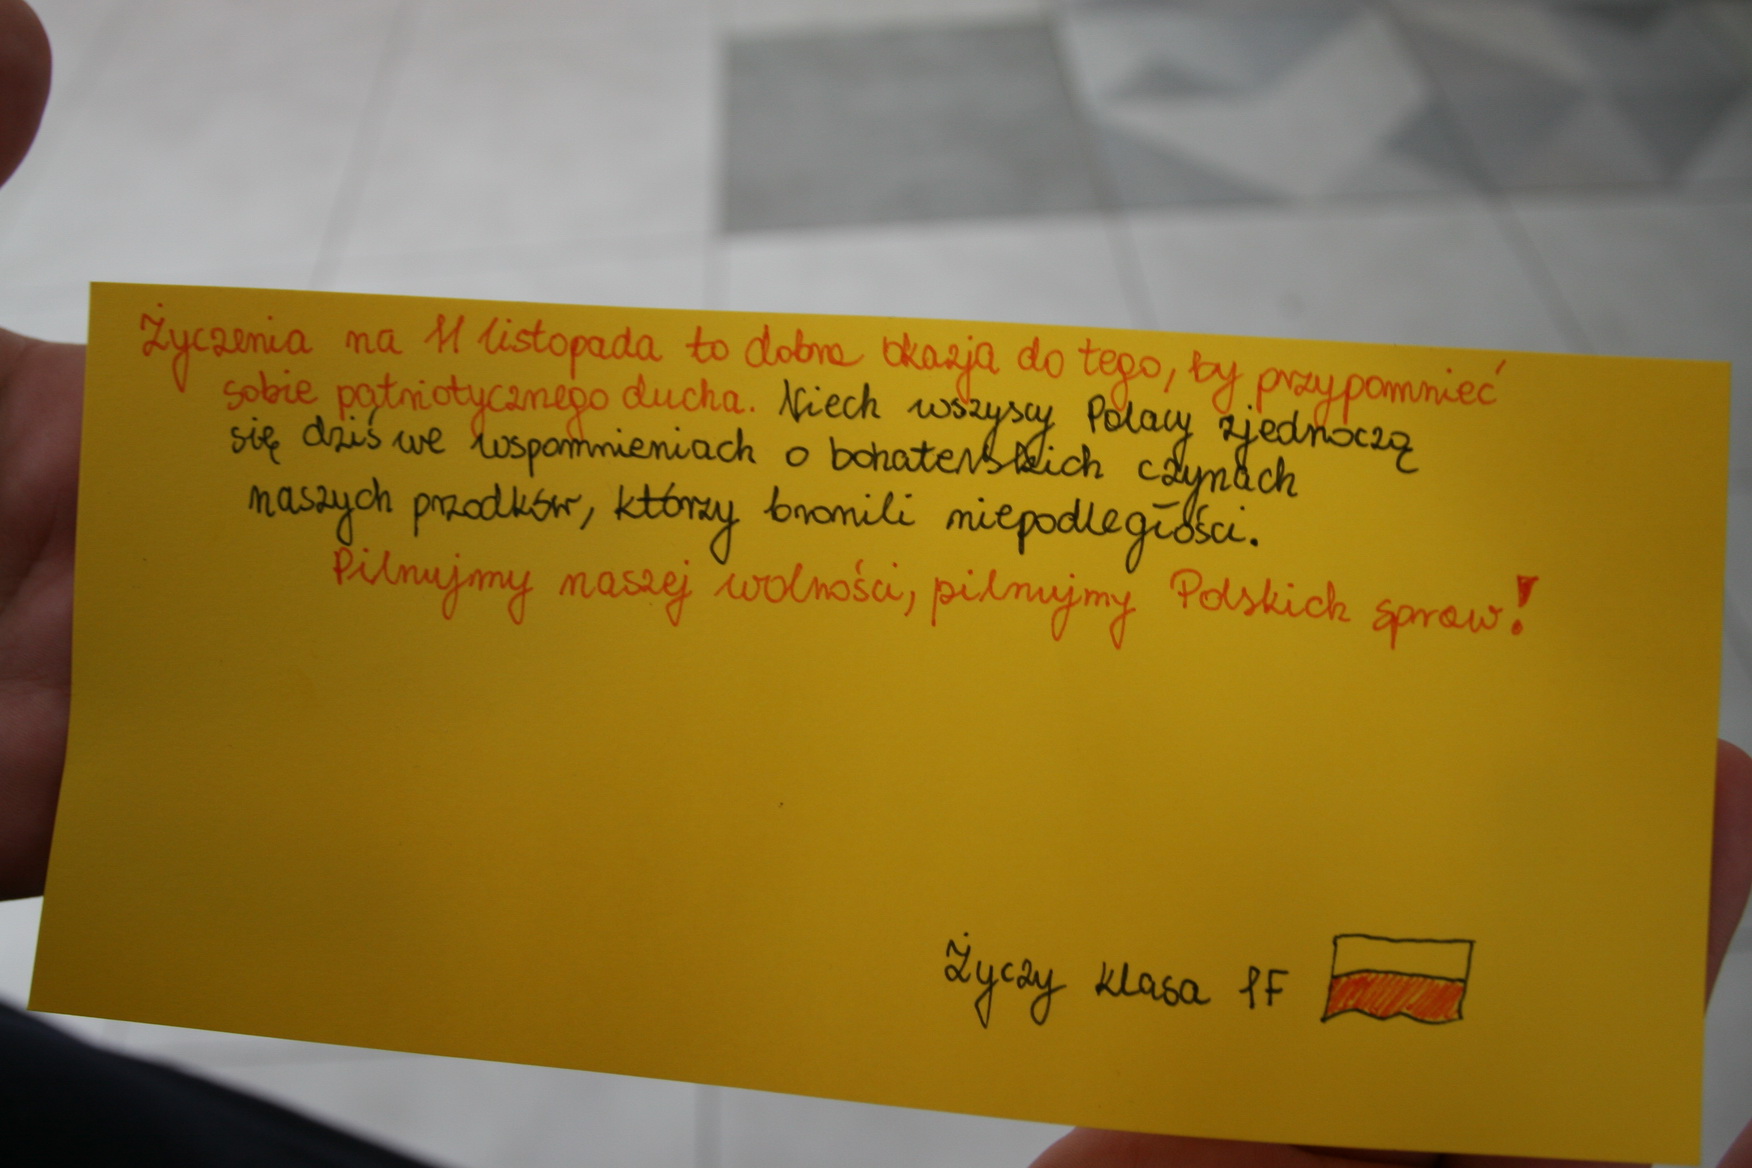 Życzenia na 11 listopada to dobra okazja do tego, by przypomnieć
sobie patriotycznego ducha. Niech wszyscy Polacy zjednoczą
się dziś we wspomnieniach o bohaterskich czynach
naszych przodków, którzy bronili niepodległości.
Pilnujmy naszej wolności, pilnujmy Polskich spraw!
Życzy klasa 1F